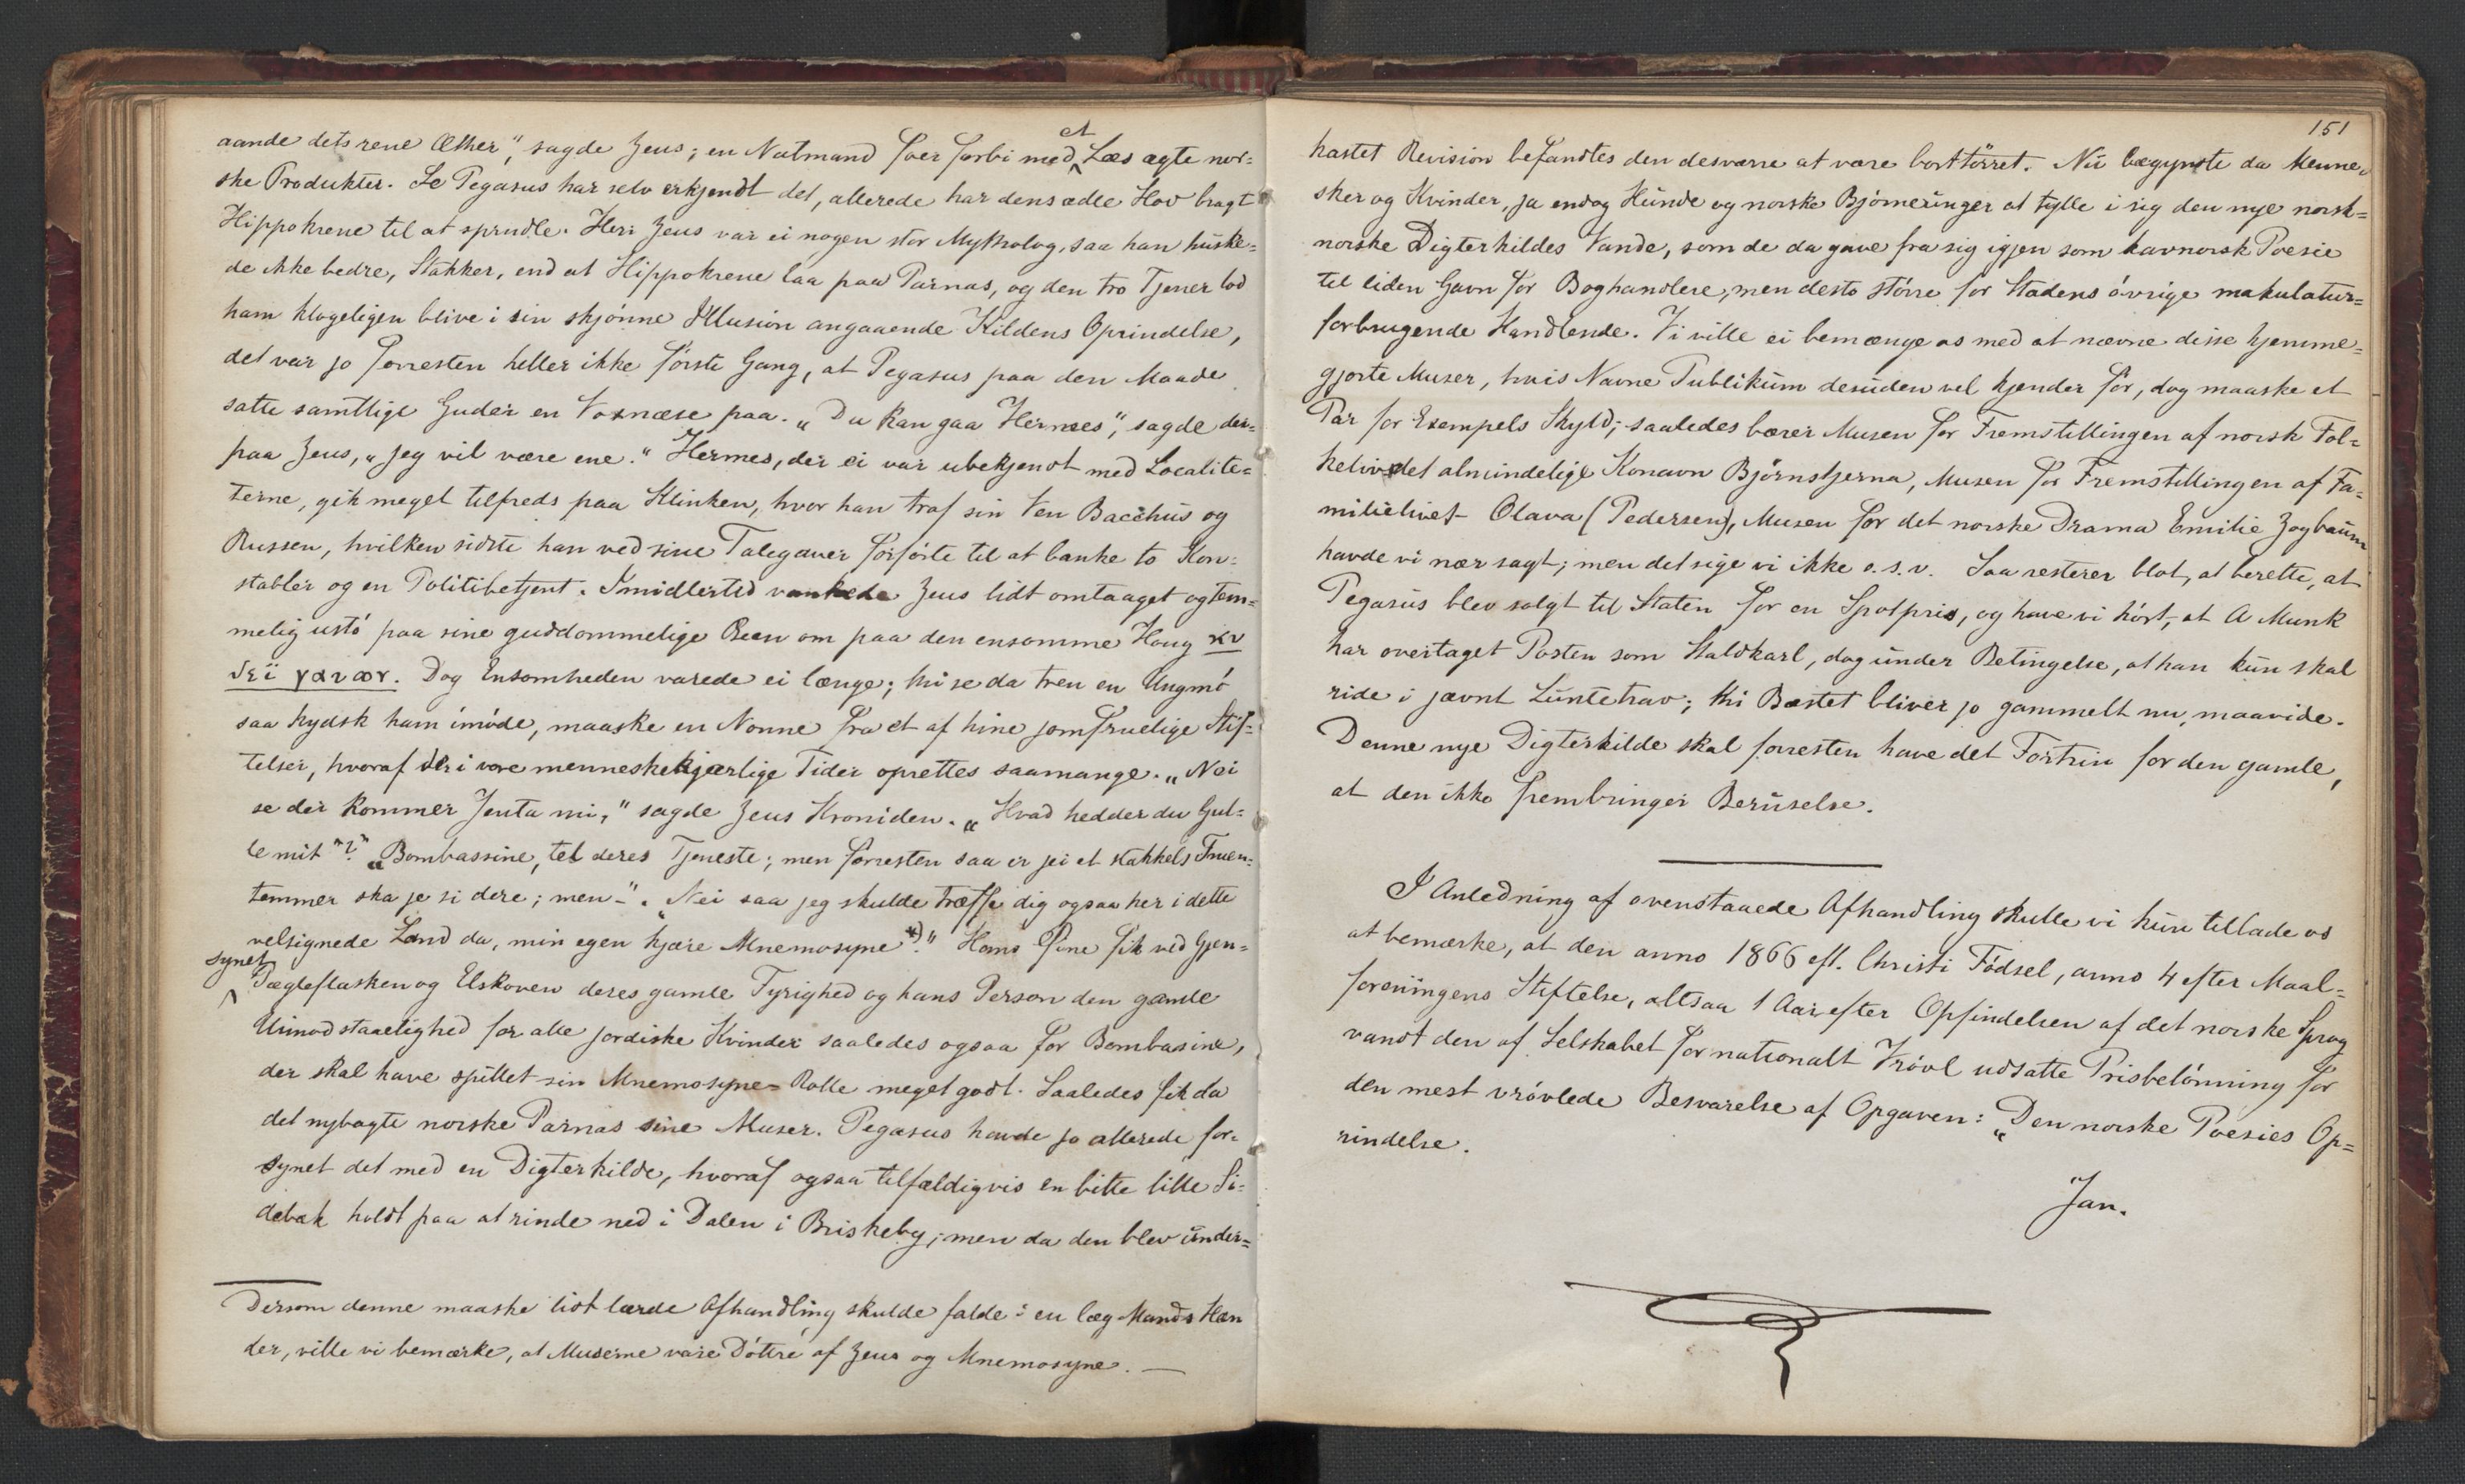 aande dets rene Æther", sagde Zeus; en Natmand foer forbi med et Læs ægte nor-
ske Produkter. Se Pegasus har selv erkjendt det, allerede har dens ædle Hov bragt
Hippokrene til at sprudle. Herr Zeus var ei nogen stor Mytholog, saa han huske-
de ikke bedre, Stakker, end at Hippokrene laa paa Parnas, og den tro Tjener lod
ham klogeligen blive i sin skjønne Illusion angaaende Kildens Oprindelse,
det var jo forresten heller ikke første Gang, at Pegasus paa den Maade
satte samtlige Guder en Voxnæse paa. "Du kan gaa Hermes", sagde der-
paa Zeus, "jeg vil være ene." Hermes, der ei var ubekjendt med Localite-
terne, gik meget tilfreds paa Klinken, hvor han traf sin Ven Bacchus og
Russen, hvilken sidste han ved sine Talegaver forførte til at banke to Kon-
stabler og en Politibetjent. Imidlertid vankede Zeus lidt omtaaget og tem-
melig ustø paa sine guddommelige Been om paa den ensomme Houg
Dog Ensomheden varede ei længe; thi se da tren en Ungmø
saa kydsk ham imøde, maaske en Nonne fra et af hine jomfruelige Stif-
telser, hvoraf der i vore menneskekjærlige Tider oprettes saamange. "Nei
se der kommer Jenta mi," sagde Zeus Kroniden. "Hvad hedder du Gul-
le mit"? "Bombassine, tel deres Tjeneste; men forresten saa er jei et stakkels Fruen-
temmer ska je si dere; men-". "Nei saa jeg skulde træffe dig ogsaa her i dette
velsignede Land da, min egen kjære Mnemosyne*)." Hans Øine fik ved Gjen-
synet Pægleflasken og Elskoven deres gamle Fyrighed og hans Person den gamle
Uimodstaaelighed for alle jordiske Kvinder saaledes ogsaa for Bombasine,
der skal have spillet sin Mnemosyne-Rolle meget godt. Saaledes fik da
det nybagte norske Parnas sine Muser. Pegasus havde jo allerede for-
synet det med en Digterkilde, hvoraf ogsaa tilfældigvis en bitte lille Si-
debæk holdt paa at rinde ned i Dalen i Briskeby; men da den blev under-
Dersom denne maaske lidt lærde Afhandling skulde falde i en læg Mands Hæn
der, ville vi bemærke, at Muserne vare Døttre af Zeus og Mnemosyne. —
151
kastet Revision befandtes den desværre at være borttørret. Nu begyndte da Menne-
sker og Kvinder, ja endog Hunde og norske Bjørneunger at tylle i sig den nye norsk-
norske Digterkildes Vande, som de da gave fra sig igjen som kavnorsk Poesie
til liden Gavn for Boghandlere, men desto større for Stadens øvrige makulatur-
forbrugende Handlende. Vi ville ei bemænge os med at nævne disse hjemme-
gjorte Muser, hvis Navne Publikum desuden vel kjender før, dog maaske et
Par for Exempels Skyld; saaledes bærer Musen for Fremstillingen af norsk Fol-
keliv det almindelige Konavn Bjørnstjerna, Musen for Fremstillingen af Fa-
milielivet Olava (Pedersen), Musen for det norske Drama Emilie Zogbaum
havde vi nær sagt; men det sige vi ikke o. s. v. Saa resterer blot, at berette, at
Pegasus blev solgt til Staten for en Spotpris, og have vi hørt, at A Munk
har overtaget Posten som Staldkarl, dog under Betingelse, at han kun skal
ride i jævnt Luntetrav; thi Bæstet bliver jo gammelt nu, maavide.
Denne nye Digterkilde skal forresten have det Fortrin for den gamle,
at den ikke frembringer Beruselse.
I Anledning af ovenstaaede Afhandling skulle vi kun tillade os
at bemærke, at den anno 1866 eft. Christi Fødsel, anno 4 efter Maal-
foreningens Stiftelse, altsaa 1 Aar efter Opfindelsen af det norske Sprog
vandt den af Selskabet for nationalt Vrøvl udsatte Prisbelønning for
den mest vrøvlede Besvarelse af Opgaven: "Den norske Poesies Op-
rindelse.
Jan.